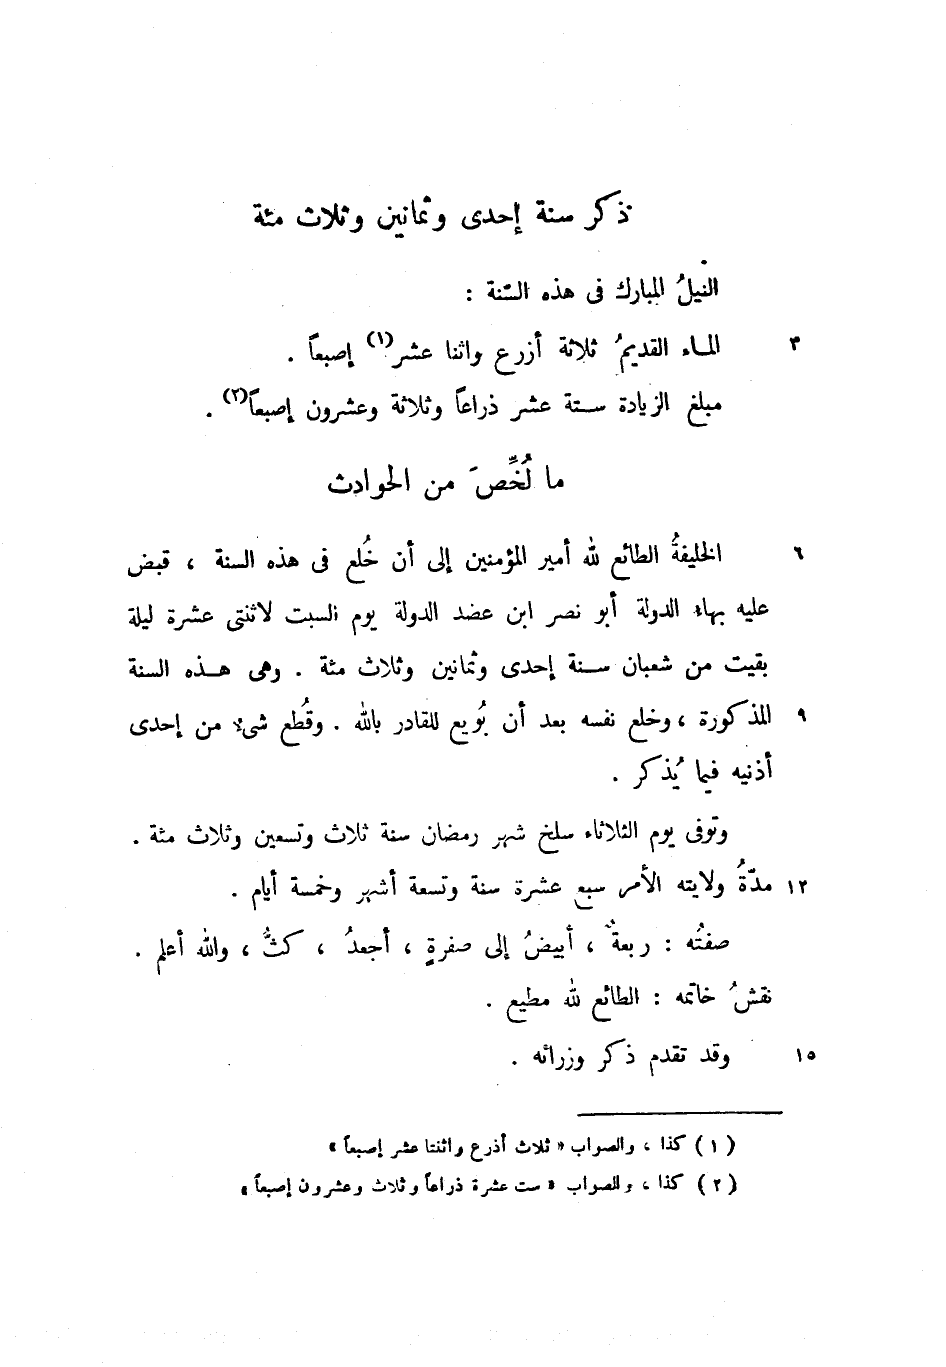 ذكر سنة إحدى وثمانين وثلاث مئة
النيلُ المبارك فى هذه السّنة :
٣ المـاء القديمُ ثلاثة أزرع واثنا عشر(١) إصبعاً .
مبلغ الزيادة ستـة عشر ذراعاً وثلاثة وعشرون إصبعاً(٢) .
ما لُخِّصَ من الحوادث
٦ الخليفةُ الطائع لله أمير المؤمنين إلى أن خُلع فى هذه السنة ، قبض
عليه بهاء الدولة أبو نصر ابن عضد الدولة يوم السبت لاثنتى عشرة ليلة
بقيت من شعبان سـنة إحدى وثمانين وثلاث مئة . وهى هـذه السنة
٩ المذكورة ، وخلع نفسه بعد أن بُويع للقادر بالله . وقُطع شىء من إحدى
أذنيه فيما يُذكر .
وتوفى يوم الثلاثاء سلخ شهر رمضان سنة ثلاث وتسعين وثلاث مئة .
١٢ مدّةُ ولايته الأمر سبع عشرة سنة وتسعة أشهر وخمسة أيام .
صفتُه : ربعةٌ ، أبيضُ إلى صفرةٍ ، أجعدُ ، كثُّ ، والله أعلم .
نقشُ خاتمه : الطائع لله مطيع .
١٥ وقد تقدم ذكر وزرائه .
(١) كذا ، والصواب « ثلاث أذرع واثنتا عشر إصبعاً »
(٢) كذا ، والصواب « ست عشرة ذراعاً وثلاث وعشرون إصبعاً »